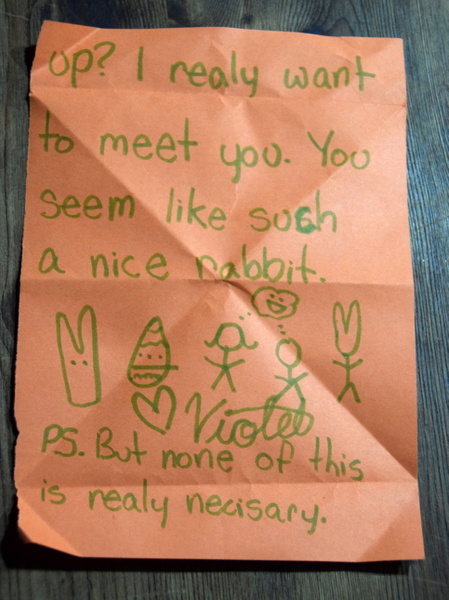 up? I realy want
to meet you. You
seem like such
a nice rabbit.
Violet
PS. But none of this
is realy necisary.